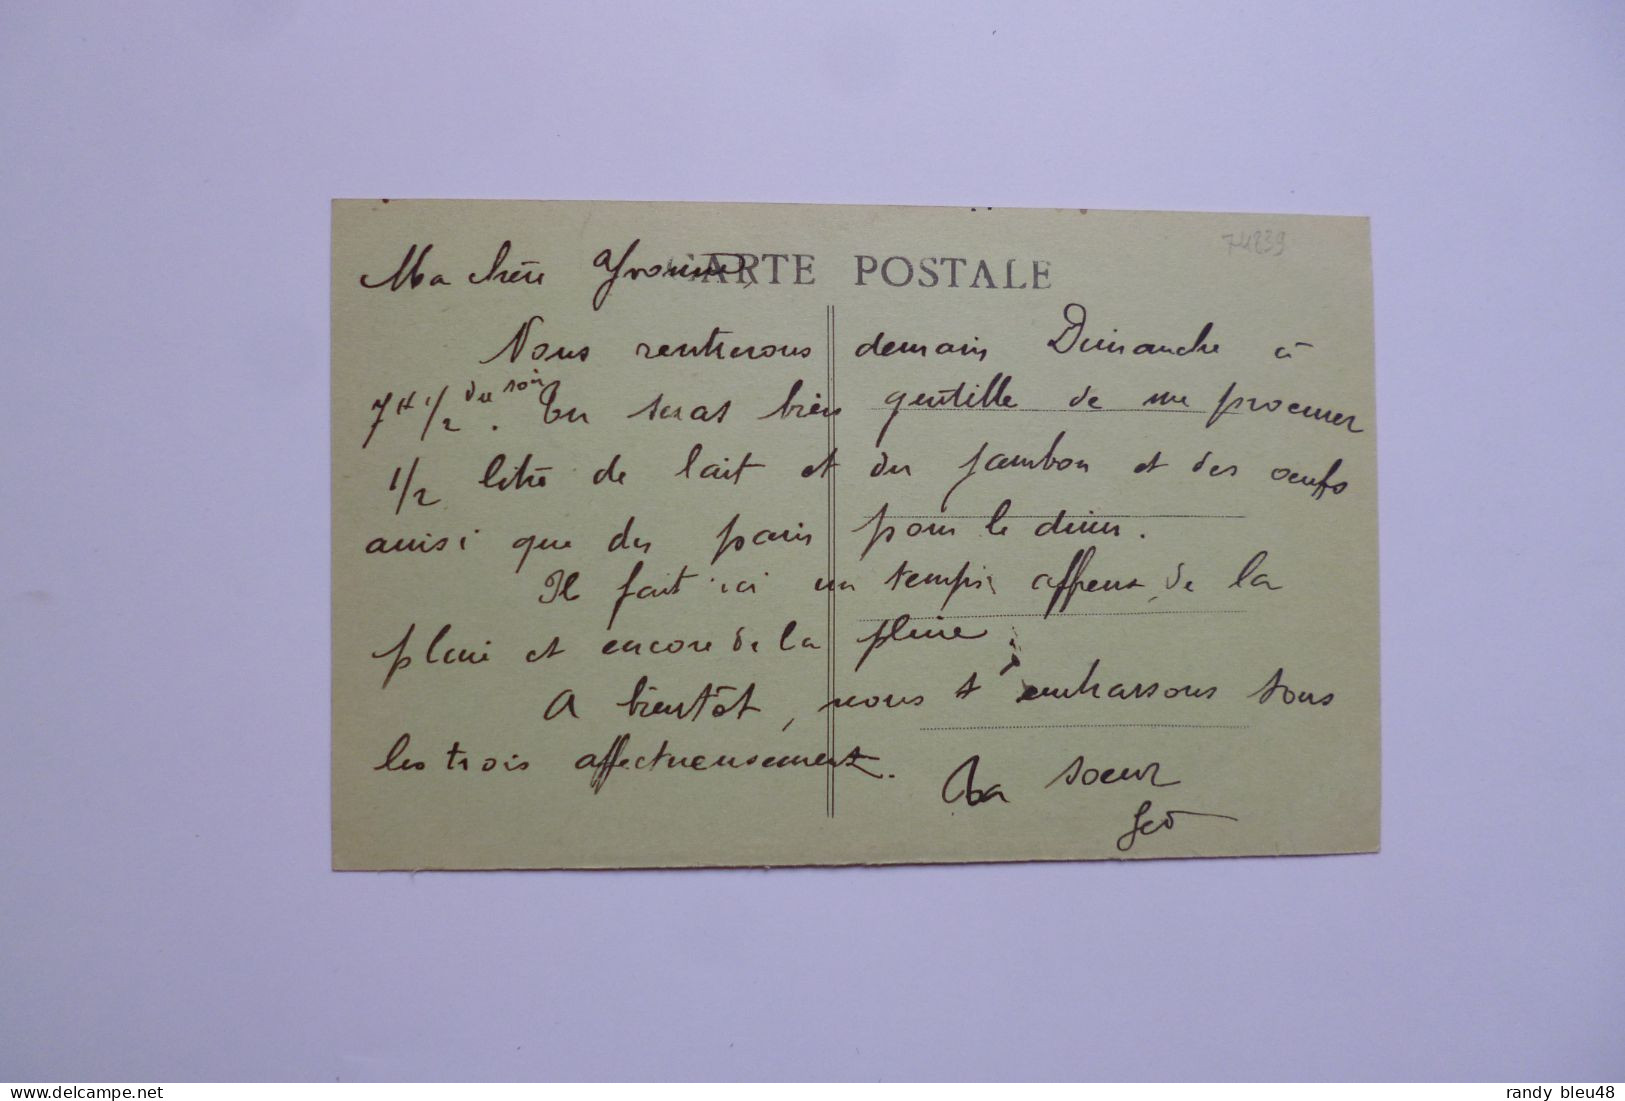 74839
CARTE POSTALE
Ma chère Yvonne,
Nous rentrerons demain Dimanche à
7H 1/2 du soir. Tu seras bien gentille de me procurer
1/2 litre de lait et du jambon et des oeufs
ainsi que du pain pour le diner.
Il fait ici un temps affreux, de la
pluie et encore de la pluie.
A bientôt, nous t'embrassons tous
les trois affectueusement.
Ta soeur
Geo
delcampe.net
randy bleu48